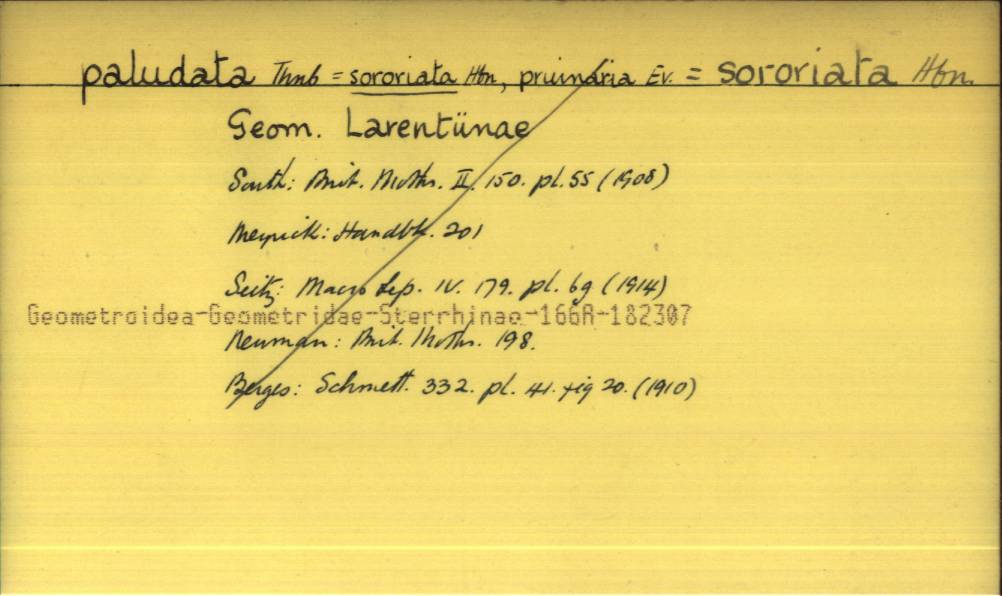 paludata Thnb = sororiata Hbn, pruinaria Ev. = sororiata Hbn.
Geom. Larentiinae
South: Brit. Moths. II. 150. pl. 55 (1908)
Meyrick: Handbk. 201
Seitz: Macro Lep. IV. 179. pl. 6g (1914)
Geometroidea-Geometridae-Sterrhinae-166A-182307
Newman: Brit. Moths. 198.
Berges: Schmett. 332. pl. 41. fig 20. (1910)